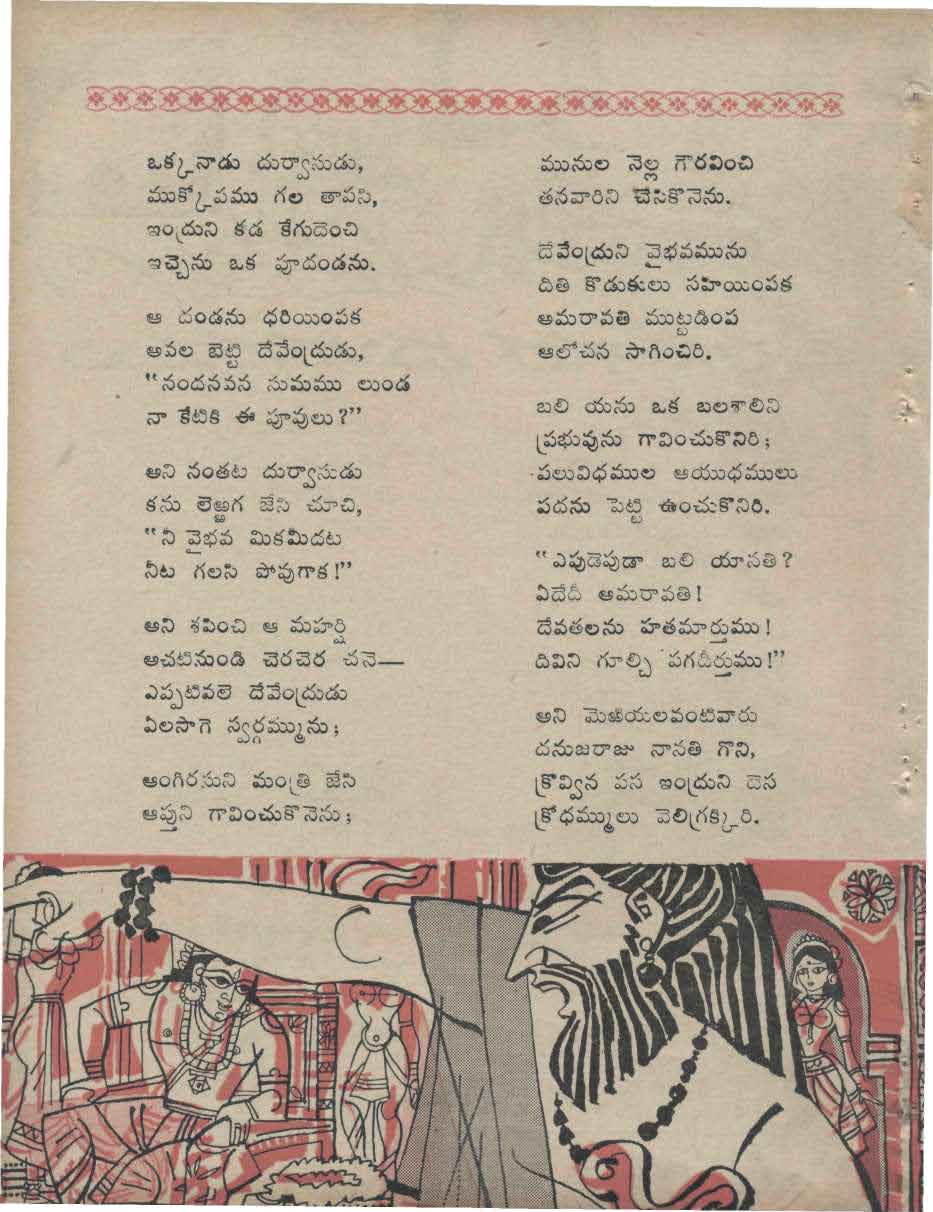 ఒక్కనాడు దుర్వాసుడు,
ముక్కోపము గల తాపసి,
ఇంద్రుని కడ కేగుదెంచి
ఇచ్చెను ఒక పూదండను.
ఆ దండను ధరియింపక
అవల బెట్టి దేవేంద్రుడు,
“నందనవన సుమము లుండ
నా కేటికి ఈ పూవులు?”
అని నంతట దుర్వాసుడు
కను లెఱ్ఱగ జేసి చూచి,
“నీ వైభవ మికమీదట
నీట గలసి పోవుగాక!”
అని శపించి ఆ మహర్షి
అచటినుండి చెరచెర చనె—
ఎప్పటివలె దేవేంద్రుడు
ఏలసాగె స్వర్గమ్మును;
ఆంగిరసుని మంత్రి జేసి
ఆప్తుని గావించుకొనెను;
మునుల నెల్ల గౌరవించి
తనవారిని చేసికొనెను.
దేవేంద్రుని వైభవమును
దితి కొడుకులు సహియింపక
అమరావతి ముట్టడింప
ఆలోచన సాగించిరి.
బలి యను ఒక బలశాలిని
ప్రభువును గావించుకొనిరి;
పలువిధముల ఆయుధములు
పదను పెట్టి ఉంచుకొనిరి.
“ఎపుడెపుడా బలి యానతి?
ఏదేదీ అమరావతి!
దేవతలను హతమార్తుము!
దివిని గూల్చి పగదీర్తుము!”
అని మెఱియలవంటివారు
దనుజరాజు నానతి గొని,
క్రొవ్విన పస ఇంద్రుని దెస
క్రోధమ్ములు వెలిగ్రక్కిరి.